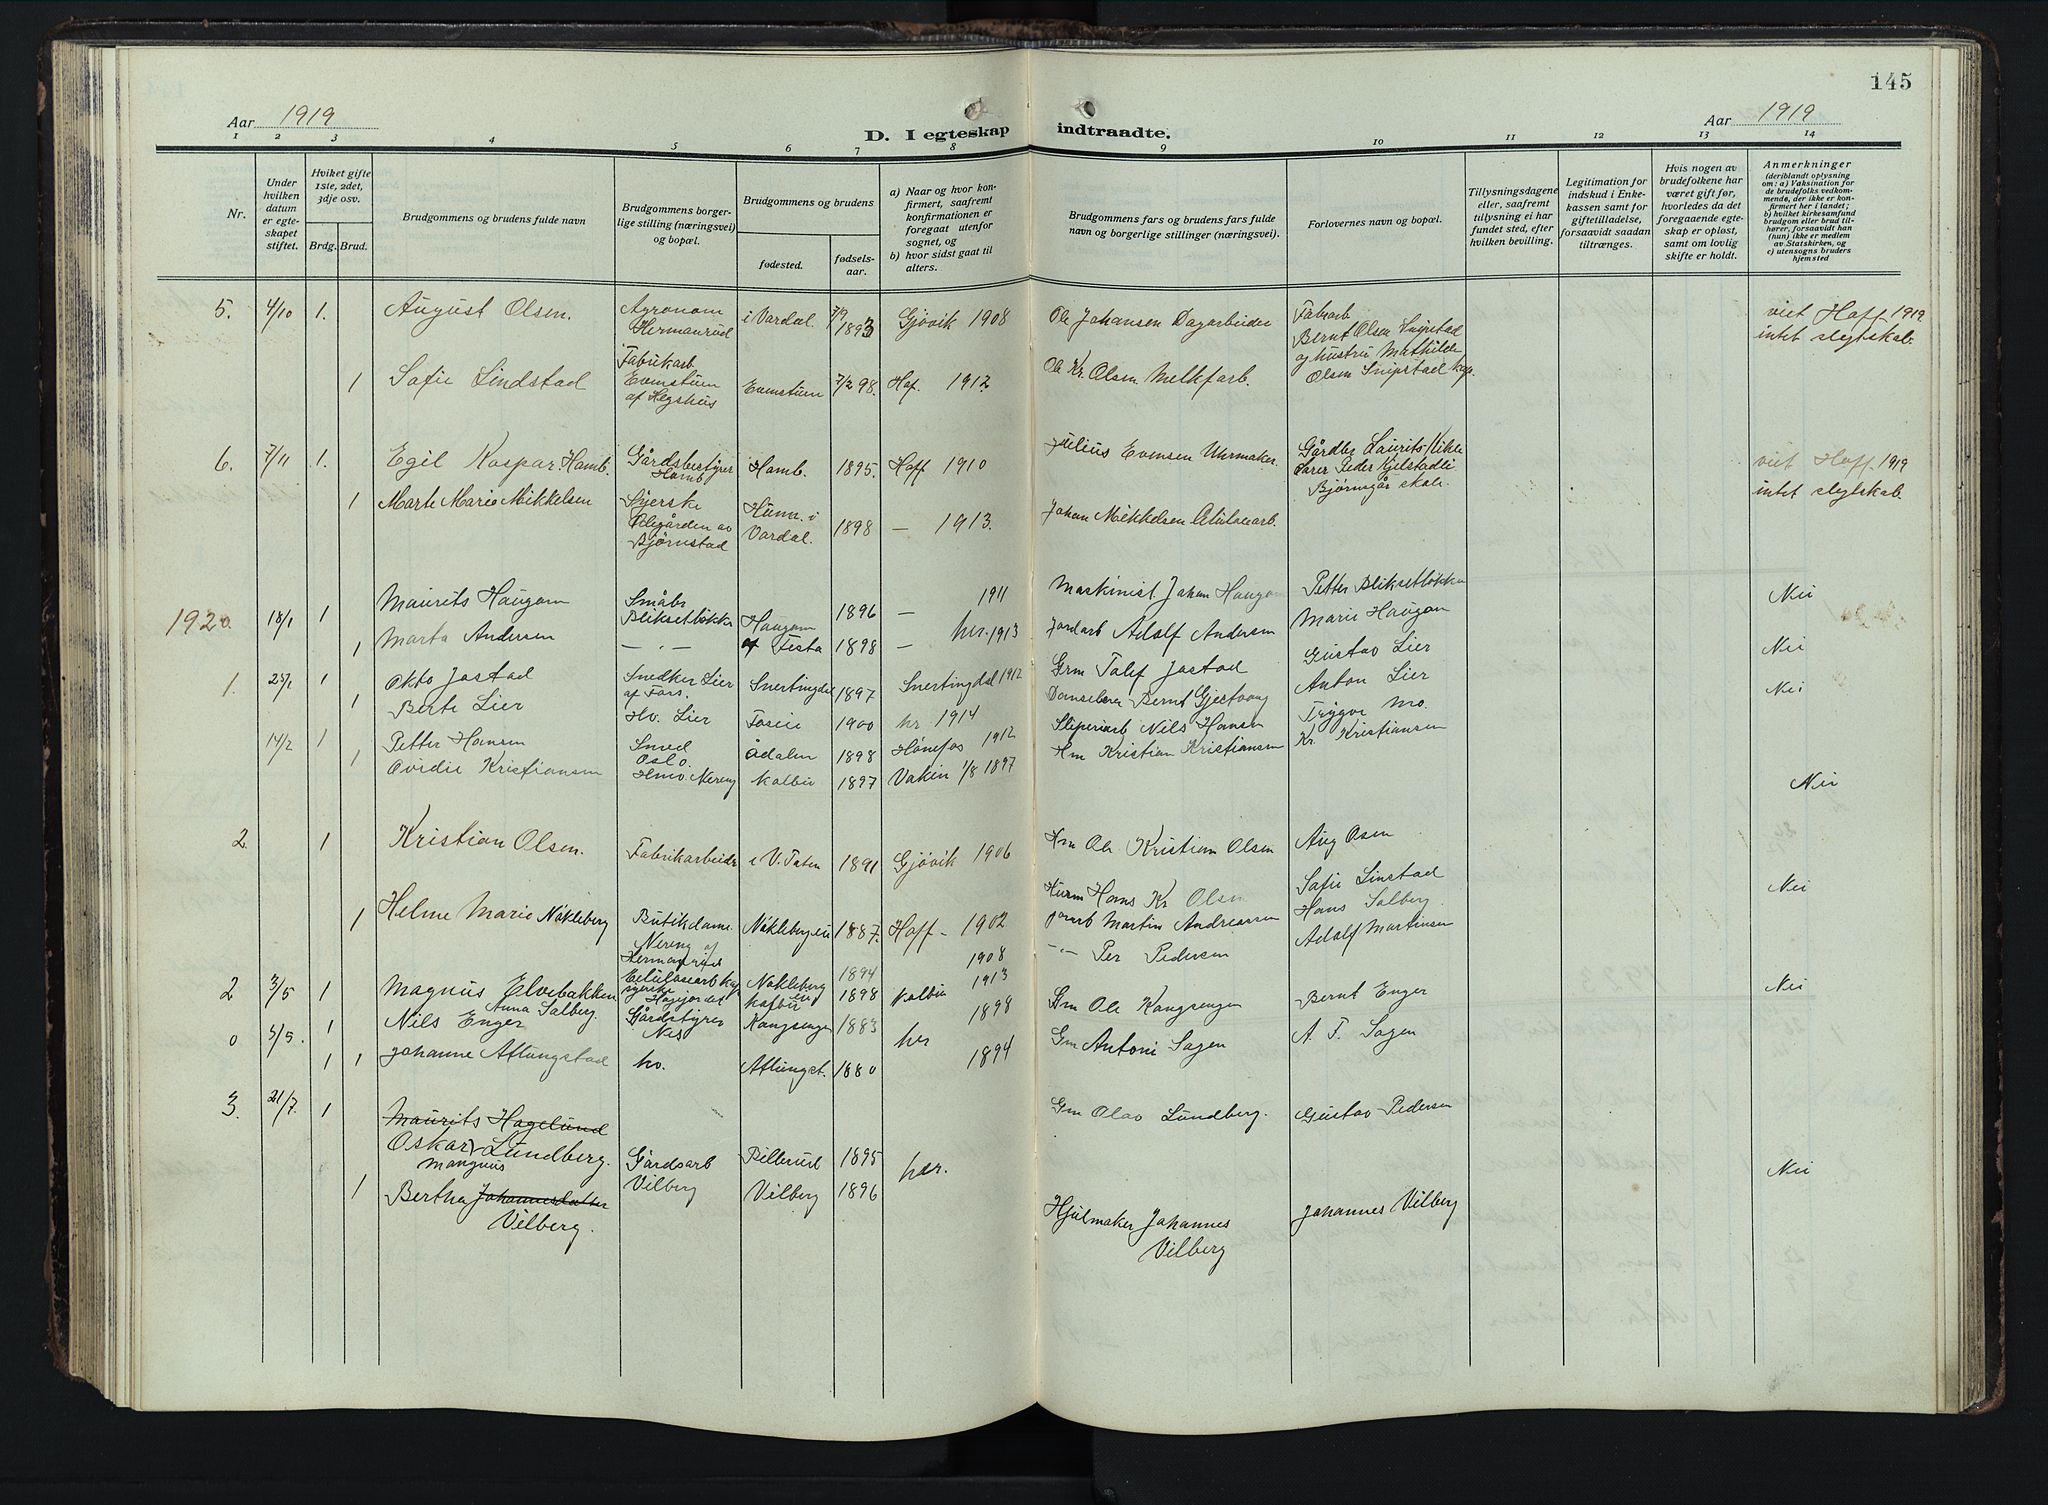 145
Aar 1919
D. I egteskap indtraadte.
Aar 1919
1 2 3 4 5 6 7 8 9 10 11 12 13 14
Nr.
Under hvilken datum er egteskapet stiftet.
Hviket gifte 1ste, 2det, 3dje osv.
Brdg. Brud.
Brudgommens og brudens fulde navn
Brudgommens borgerlige stilling (næringsvei) og bopæl.
Brudgommens og brudens
fødested.
fødselsaar.
a) Naar og hvor konfirmert, saafremt konfirmationen er foregaat utenfor sognet, og
b) hvor sidst gaat til alters.
Brudgommens fars og brudens fars fulde navn og borgerlige stillinger (næringsvei).
Forlovernes navn og bopæl.
Tillysningsdagene eller, saafremt tillysning ei har fundet sted, efter hvilken bevilling.
Legitimation for indskud i Enkekassen samt for giftetilladelse, forsaavidt saadan tiltrænges.
Hvis nogen av brudefolkene har været gift før, hvorledes da det foregaaende egteskap er opløst, samt om lovlig skifte er holdt.
Anmerkninger
(deriblandt oplysning om: a) Vaksination for de brudefolks vedkommende, der ikke er konfirmert her i landet; b) hvilket kirkesamfund brudgom eller brud tilhører, forsaavidt han (hun) ikke er medlem av Statskirken, og c) utensogns bruders hjemsted
5. 4/10 1. August Olsen. Agronom Hermanrud i Vardal. 7/9 1893 Gjøvik 1908 Ole Johansen Dagarbeider Fabrarb Bernt Olsen Snipstad og hustru Mathilde Olsen Snipstad viet Hoff 1919 intet slegtskab.
1 Sofie Lindstad Fabrikarb. Evenstuen af Hegshus Evenstuen 7/2 98. Hof. 1912. Ole Kr. Olsen Melkfarb.
6. 7/11 1. Egil Kaspar Hamb. Gårdsbestyrer Hamb Hamb. 1895. Hoff 1910 Julius Evensen Uhrmaker. Gårdbr Laurits Peder Kjelstadli viet Hoff. 1919 intet slegtskab.
1 Marte Marie Mikkelsen Syerske Bjørnstad Hunn. i Vardal. 1898 — 1913. Johan Mikkelsen
1920. 18/1 1 Maurits Haugom Småbr Bliksetløkken 1896 — 1911 Maskinist Johan Haugom Petter Bliksetløkken Nei
1 Marta Andersen — " — Haugom af Festa 1898 — her. 1913 Jordarb Adolf Andersen Marie Haugom
1. 25/1 1 Okto Jøstad Snedker Lier af Fors. Snertingdal 1897 Snertingdal 1912 Grm Tolef Jøstad Gustav Lier Nei
1 Berte Lier Hv. Lier 1900 hr 1914 Bernt Gjestvang Anton Lier Nei
14/2 1 Petter Hansen Smed Oslo. Ådalen 1898 Hønefos 1912 Sliperiarb Nils Hansen Trygve Mo.
1 Ovidie Kristiansen Nering Kolbu 1897 1/8 1897 Hm Kristian Kristiansen Kr. Kristiansen
Nei
2 1 Kristian Olsen. Fabrikarbeider i V. Toten 1891 Gjøvik 1906 Hm Ole Kristian Olsen Aug Osen
1 Helme Marie Nøkleberg Butikdame. Nering af Nøkleberg 1887. Hoff – 1902 Husm Hans Kr Olsen Sofie Linstad Nei
Jorarb Martin Andreassen Hans Salberg.
1908 – " – Per Pedersen Adolf Martinsen
2 3/5 1 Magnus Elvebakken Nøkleberg 1894
Anna Salberg. Kolbu 1898 Kolbu 1913
0 3/5. 1 Nils Enger Gårdstyrer Nes 1883 her 1898 Gm Ole Kongsengen Bernt Enger Nei
1 1 Johanne Aftungstad ho. Aftungst. 1880 1894 Gm Antoni Sagen A. T. Sagen
3. 21/7. 1 Maurits Hagelund
Oskar Magnus Lundberg. Gårdsarb Billerud 1895 her. Gm Olav Lundberg. Gustav Pedersen Nei
1 Bertha Johannesdatter Vilberg. Vilberg Vilberg 1896 Hjulmaker Johannes Vilberg Johannes Vilberg